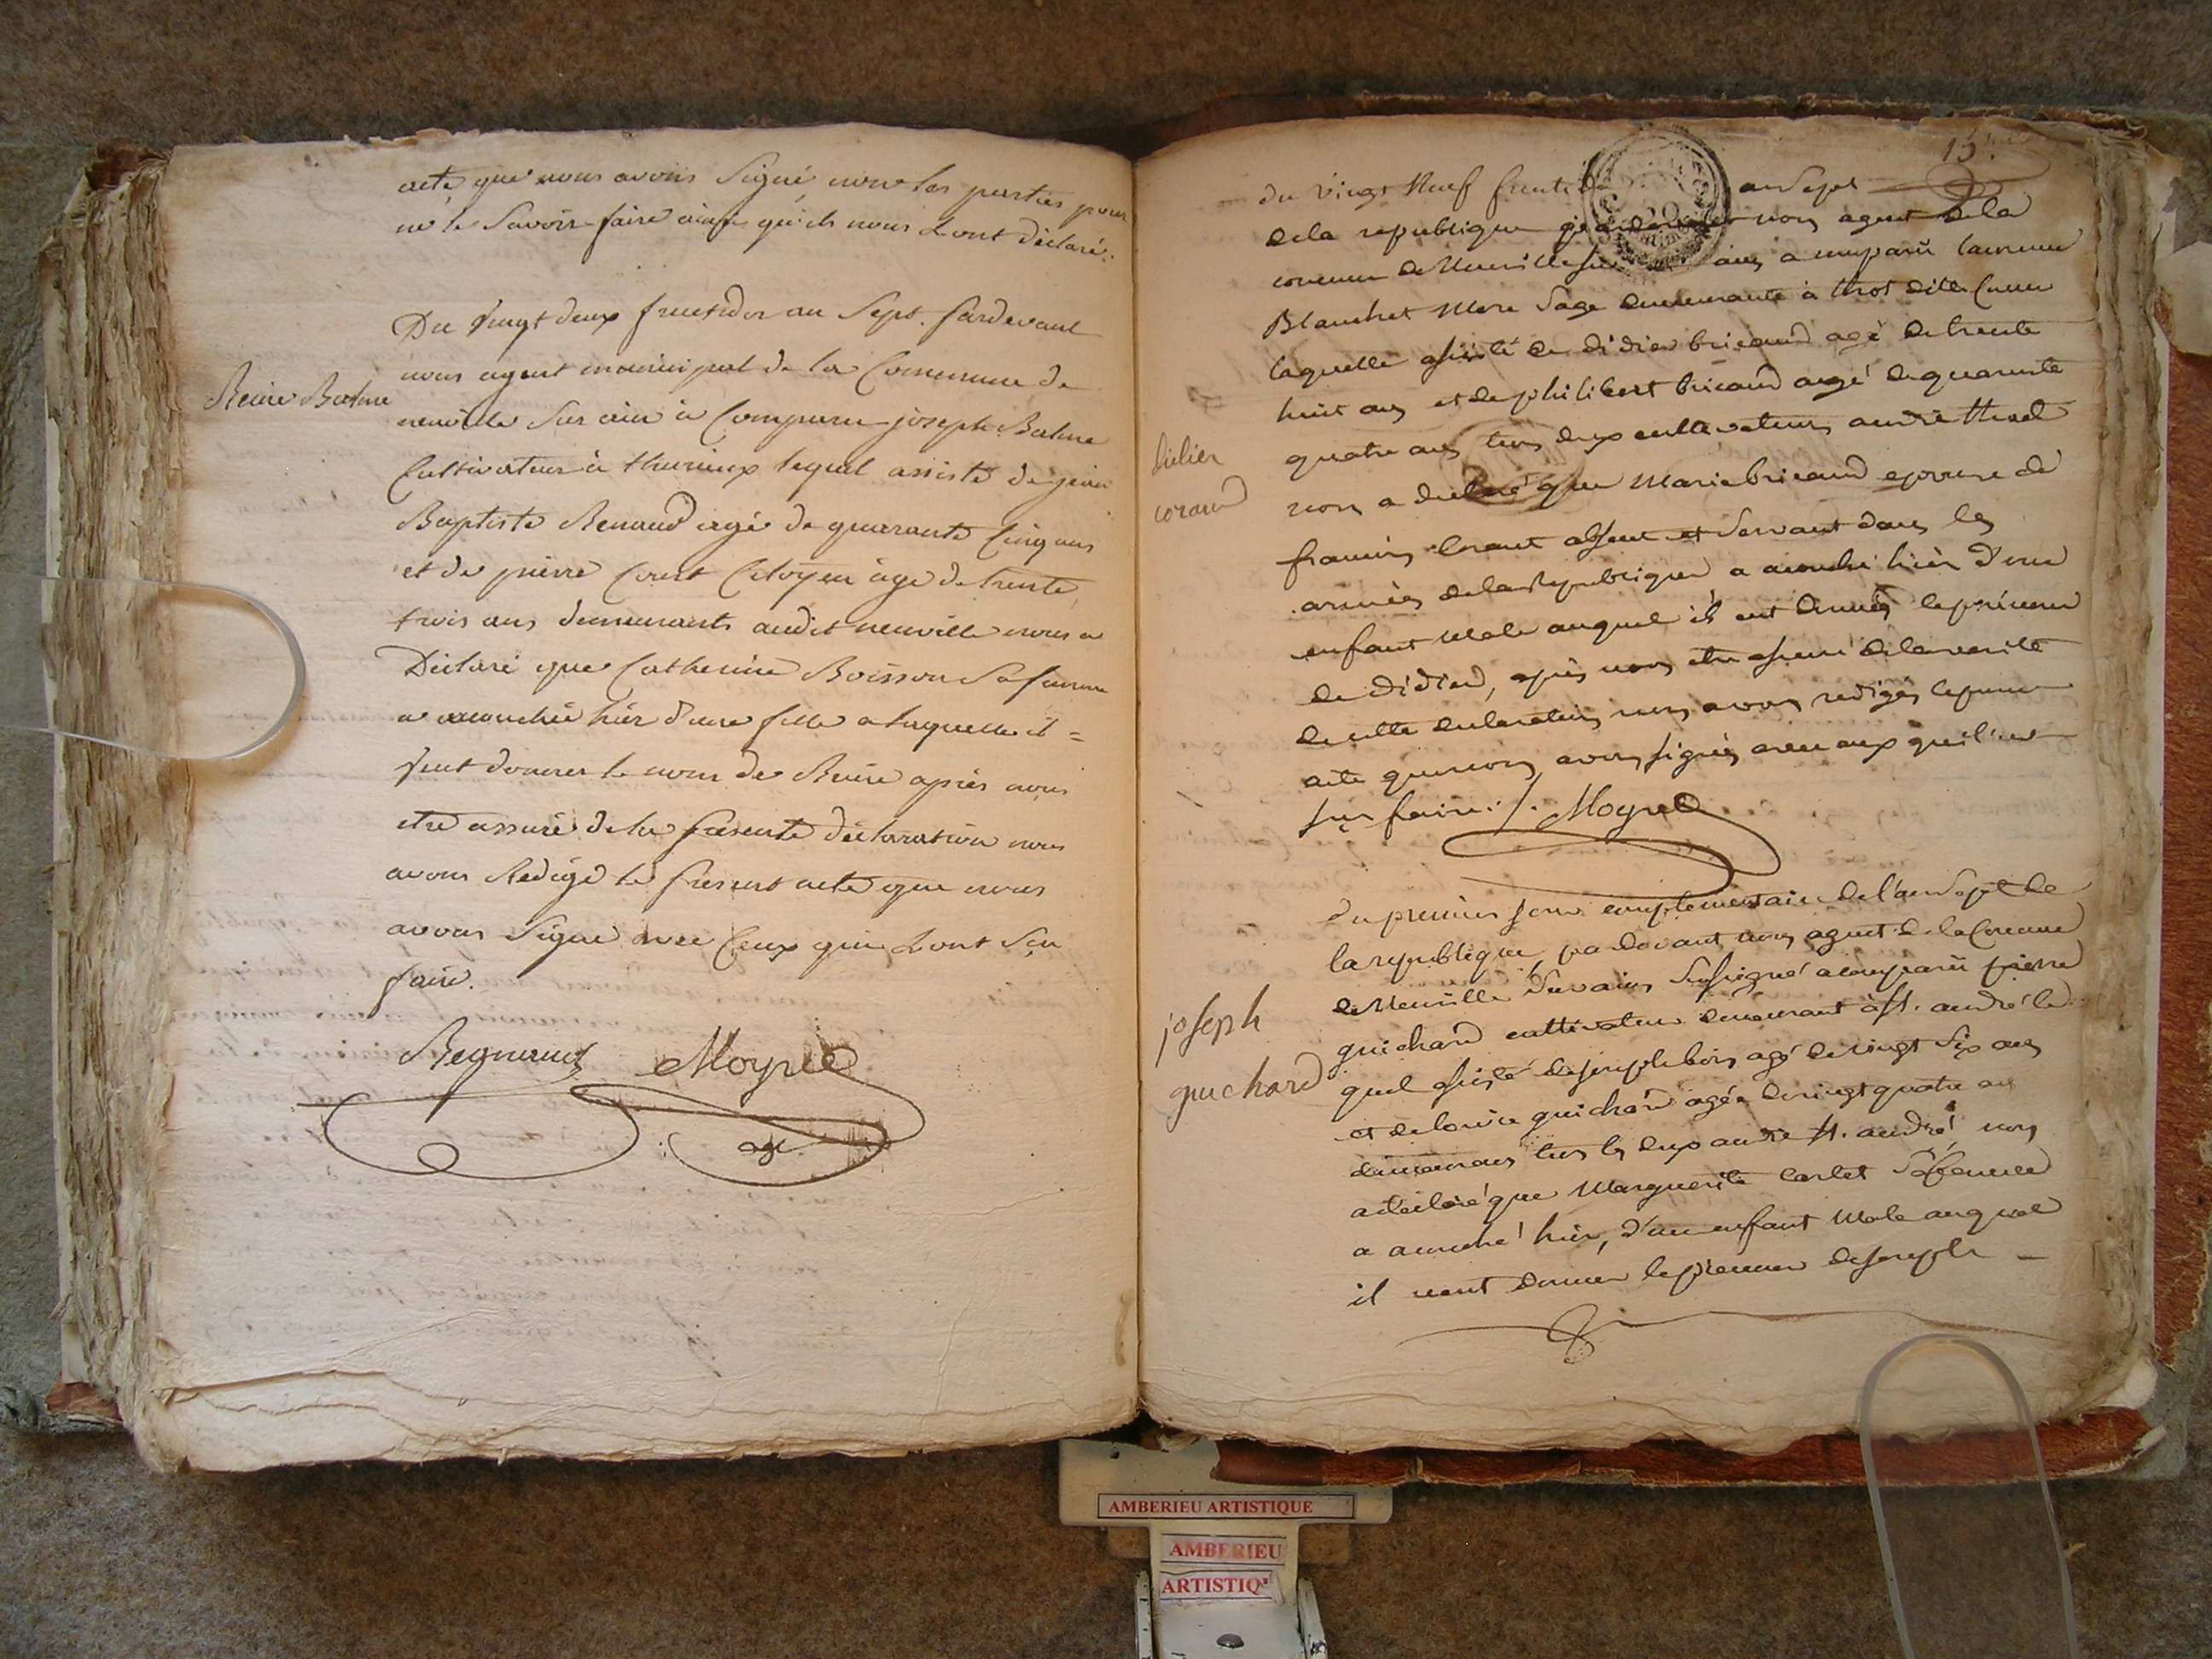 acte que nous avons Signé non les parties pour
ne le Savoir faire ainsi qu'ils nous L'ont déclaré.
Du Vingt deux fructidor an Sept. pardevant
nous agent municipal de la Commune de
Reine Balme
neuville Sur ain a Comparu joseph Balme
Cultivateur à thurieux lequel assisté de jean
Baptiste Renaud agé de quarante Cinq ans
et de pierre Convert Citoyen âgé de trente
trois ans demeurants audit neuville nous a
Déclaré que Catherine Boisson Sa femme
a accouchée hier d'une fille a laquelle il =
veut donner le nom de Reine après nous
etre assuré de la presente déclaration nous
avons Redigé le present acte que nous
avons Signé avec Ceux qui L'ont Sçu
faire.
Regnaud Moyret
agt
15
du vingt Neuf fructidor an Sept
de la republique pardevant nous agent de la
commune de Neuville sur ain, a comparu
Blanchet Mere Sage demeurante à
laquelle assisté de didier bricaud agé de trente
huit ans et de philibert bricaud agé de quarante
quatre ans tous deux cultivateurs audit
didier
nous a declaré que Marie bricaud epouse de
corand
francois corant absent et Servant dans les
armées de la Republique a accouché hier d'un
enfant Male auquel ils ont donnés le prenom
de didier, après nous etre assuré de la verité
de cette declaration nous avons redigés le present
acte que nous avons signés avec ceux qui l'ont
sçu faire. Moyret
du premier jour complementaire de l'an Sept de
la republique, pardevant nous agent de la Commune
de Neuville Sur ain Sousigné a comparu pierre
joseph
guichard cultivateur demeurant à St. andré le
guichard
quel assisté de joseph bois agé de vingt Six ans
et de louise guichard agée de vingt quatre ans
demeurans tous les deux audit St. andré, nous
a declaré que Marguerite carlet Sa femme
a accouché hier, d'un enfant Male auquel
il veut donner le prenom de joseph
AMBERIEU ARTISTIQUE
AMBERIEU
ARTISTIQ